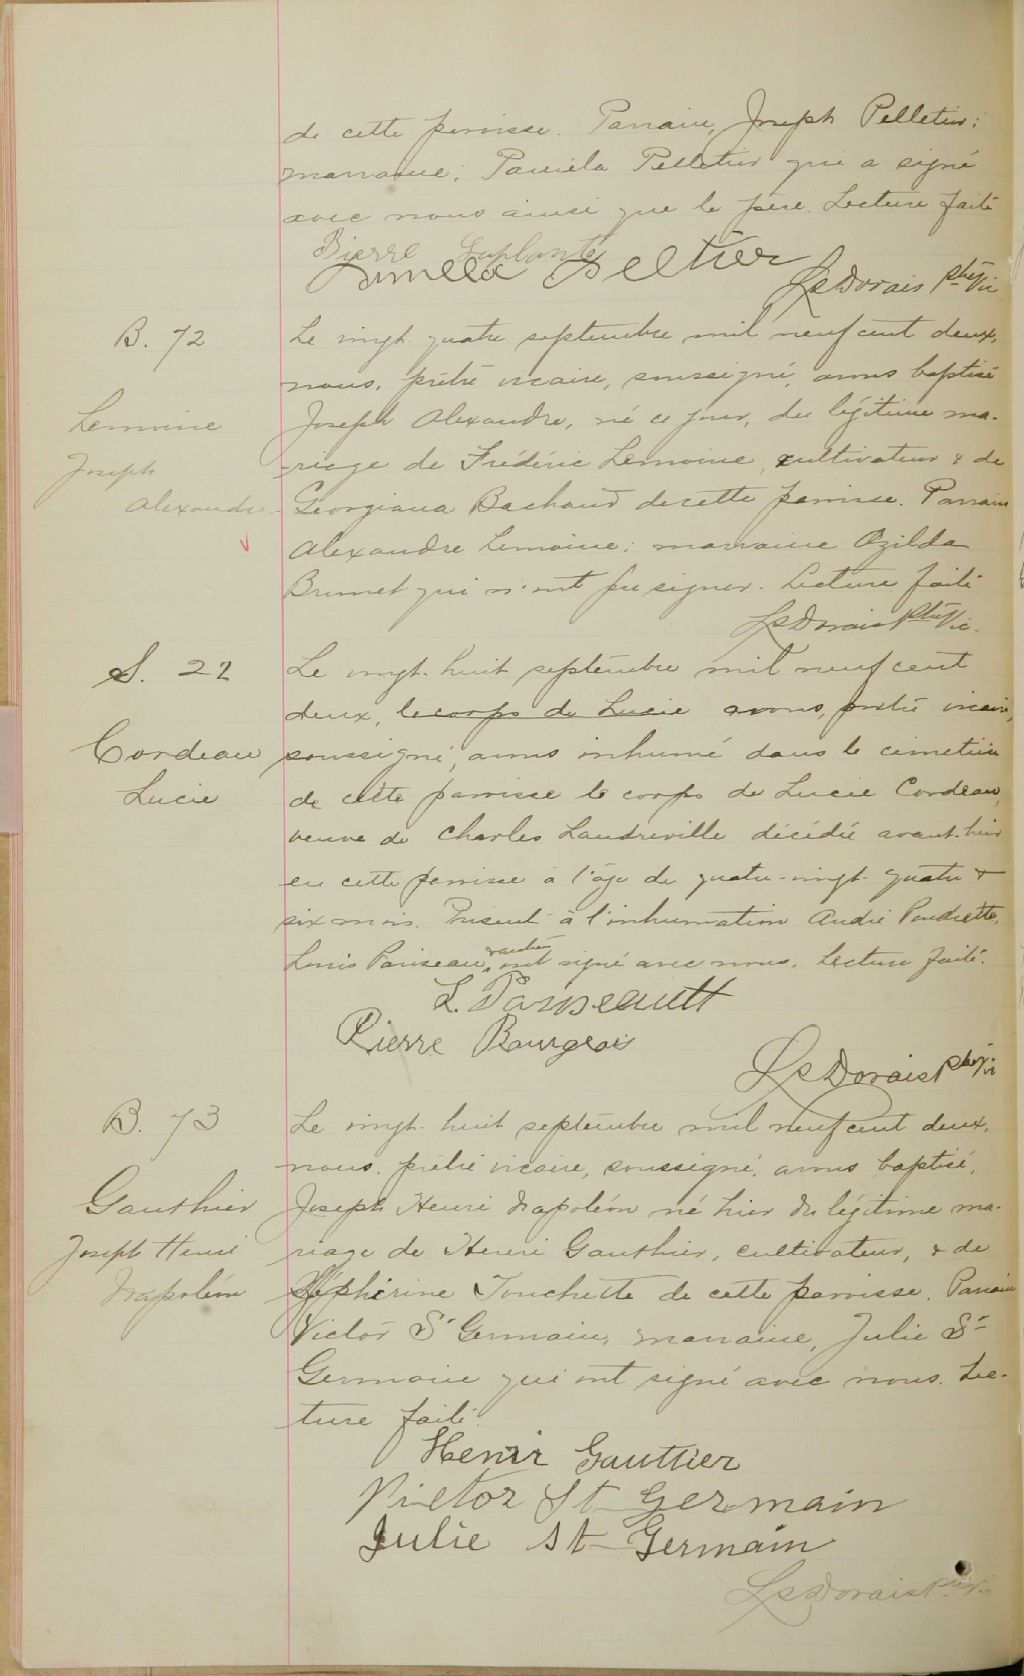 de cette paroisse. Parrain, Joseph Pelletier;
marraine; Paméla Pelletier qui a signé
avec nous ainsi que le père. Lecture faite
Pierre Laplante
Pamela Peltier
LsDorais Ptre Vic
B. 72
Le vingt-quatre septembre mil neuf cent deux,
nous, prêtre vicaire, soussigné, avons baptisé
Lemoine
Joseph Alexandre, né ce jour, du légitime ma-
Joseph
riage de Frédéric Lemoine, cultivateur & de
Alexandre
Georgiana Bachand de cette paroisse. Parrain
Alexandre Lemoine; marraine Ozilda
Brunet qui n'ont pu signer. Lecture faite
LsDorais Ptre Vic.
S. 22
Le vingt-huit septembre mil neuf cent
deux, le corps de Lucie nous, prêtre vicaire,
Cordeau
soussigné, avons inhumé dans le cimetière
Lucie
de cette paroisse le corps de Lucie Cordeau,
veuve de Charles Landreville décédée avant-hier
en cette paroisse à l'âge de quatre-vingt-quatre &
six mois. Présent à l'inhumation André Paudrette,
Louis Pariseau, & autres ont signé avec nous. Lecture faite.
L. Pariseault
Pierre Bourgeois
LsDorais Ptre Vi
B. 73
Le vingt-huit septembre mil neuf cent deux,
nous, prêtre vicaire, soussigné, avons baptisé,
Gauthier
Joseph Henri Napoléon né hier du légitime ma-
Joseph Henri
riage de Henri Gauthier, cultivateur, & de
Napoléon
Zéphirine Touchette de cette paroisse. Parrain
Victor St Germain, marraine, Julie St
Germain qui ont signé avec nous. Lec-
ture faite.
Henir Gauttier
Victor St Germain
Julie St Germain
LsDorais Ptre Vic